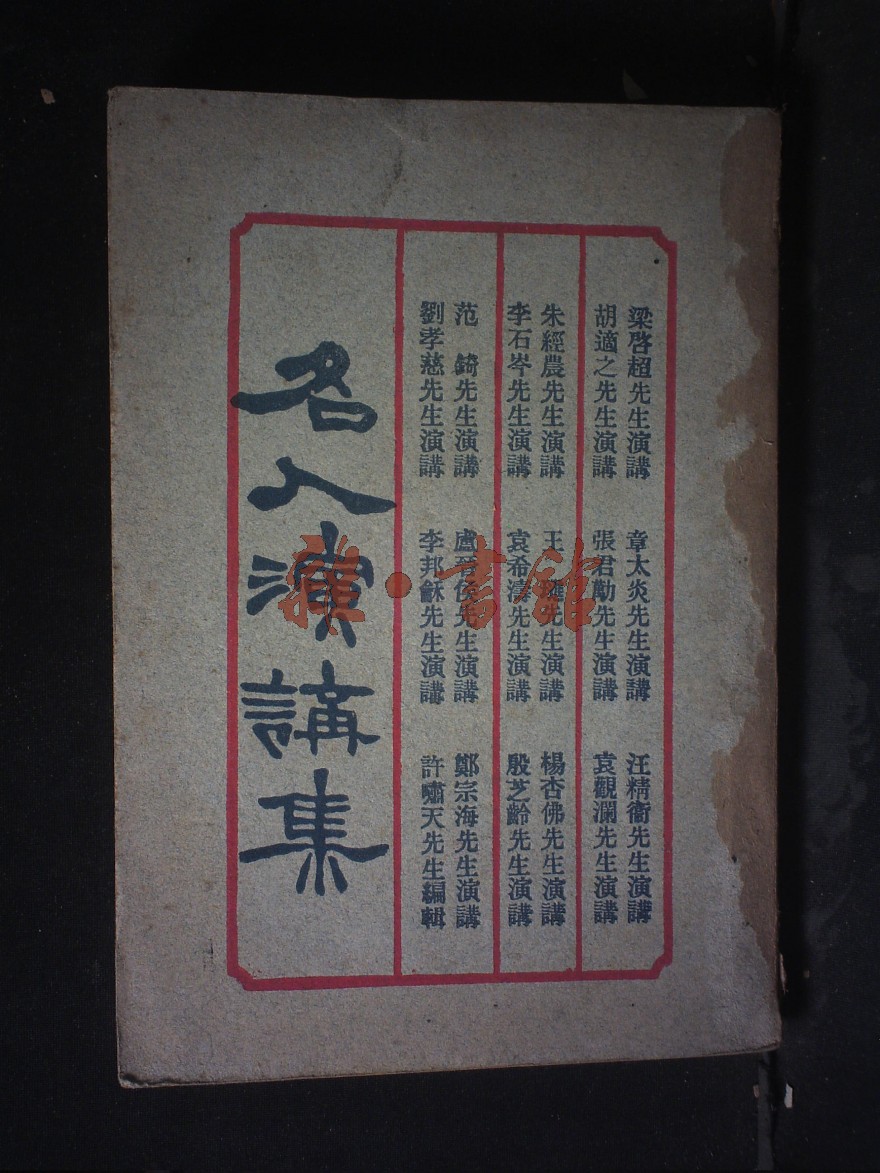 梁啓超先生演講 章太炎先生演講 汪精衞先生演講
胡適之先生演講 張君勱先生演講 袁觀瀾先生演講
朱經農先生演講 王 先生演講 楊杏佛先生演講
李石岑先生演講 袁希濤先生演講 殷芝齡先生演講
范 錡先生演講 盧晉侯先生演講 鄭宗海先生演講
劉孝慈先生演講 李邦龢先生演講 許嘯天先生編輯
名人演講集
書館